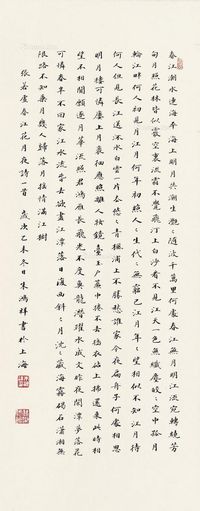 春江潮水連海平海上明月共潮生灩〻隨波千萬里何處春江無月明江流宛轉繞芳
甸月照花林皆似霰空裏流霜不覺飛汀上白沙看不見江天一色無纖塵皎〻空中孤月
輪江畔何人初見月江月何年初照人〻生代〻無窮已江月年〻望相似不知江月待
何人但見長江送流水白雲一片去悠〻青楓浦上不勝愁誰家今夜扁舟子何處相思
明月樓可憐樓上月裴回應照離人妝鏡臺玉戶簾中捲不去搗衣砧上拂還來此時相
望不相聞願逐月華流照君鴻雁長飛光不度魚龍潛躍水成文昨夜閒潭夢落花
可憐春半不回家江水流春去欲盡江潭落月復西斜〻月沉〻藏海霧碣石瀟湘無
限路不知乘月幾人歸落月搖情滿江樹
張若虛春江花月夜詩一首 歲次己未冬日朱鴻祥書於上海